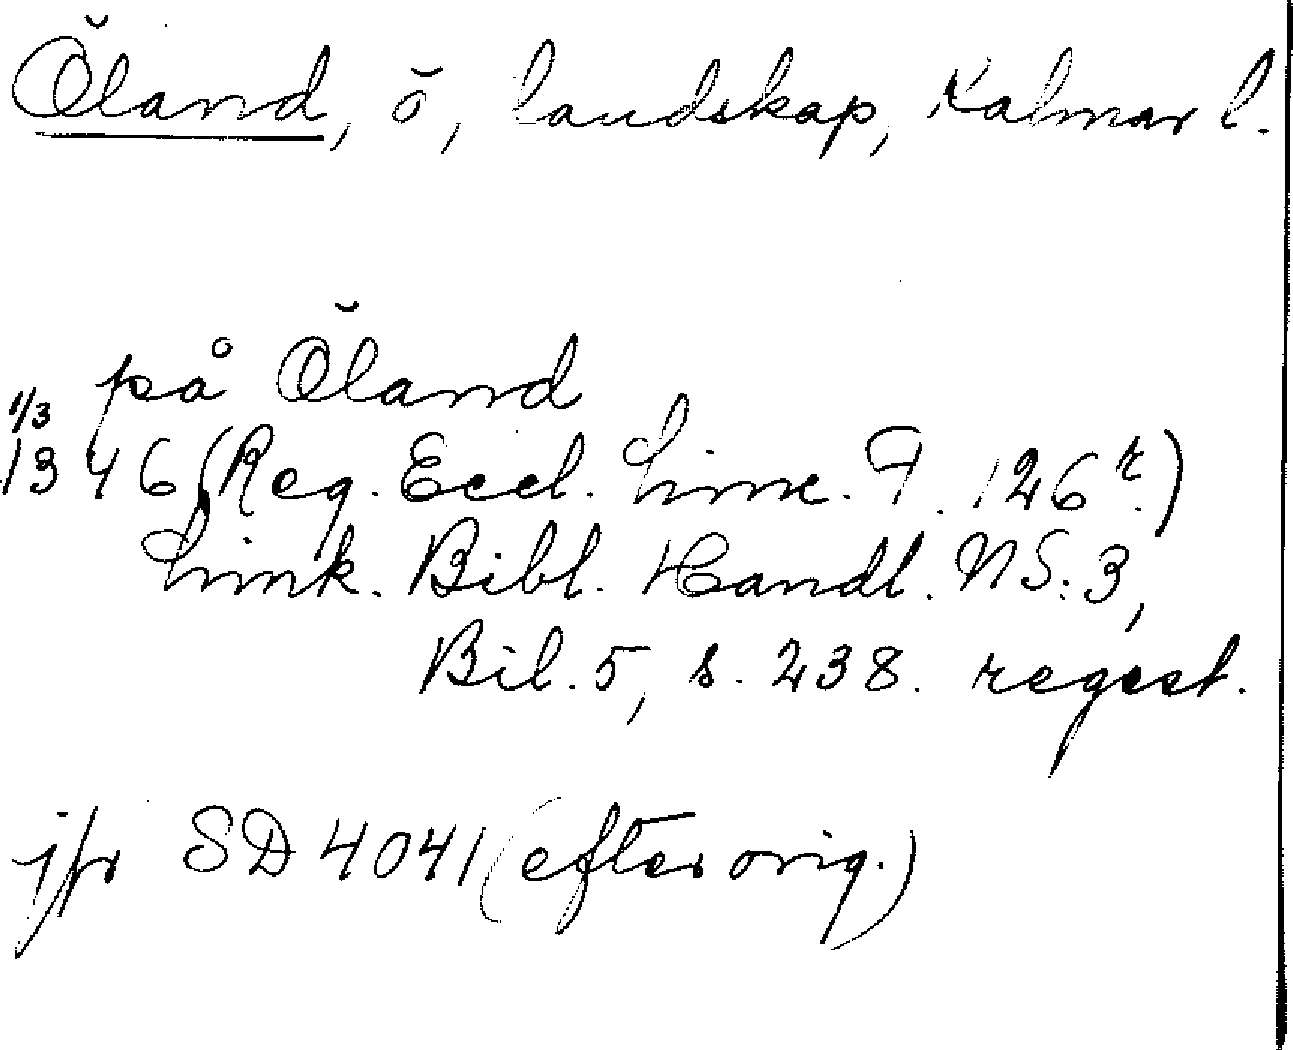 Öland, ö, landskap, Kalmar l.
på Öland
1/3
1346 (Reg. Eccl. Linc. F. 126 r.)
Link. Bibl. Handl. NS: 3,
Bil. 5, s. 238. regest.
jfr SD 4041 (efter orig.)